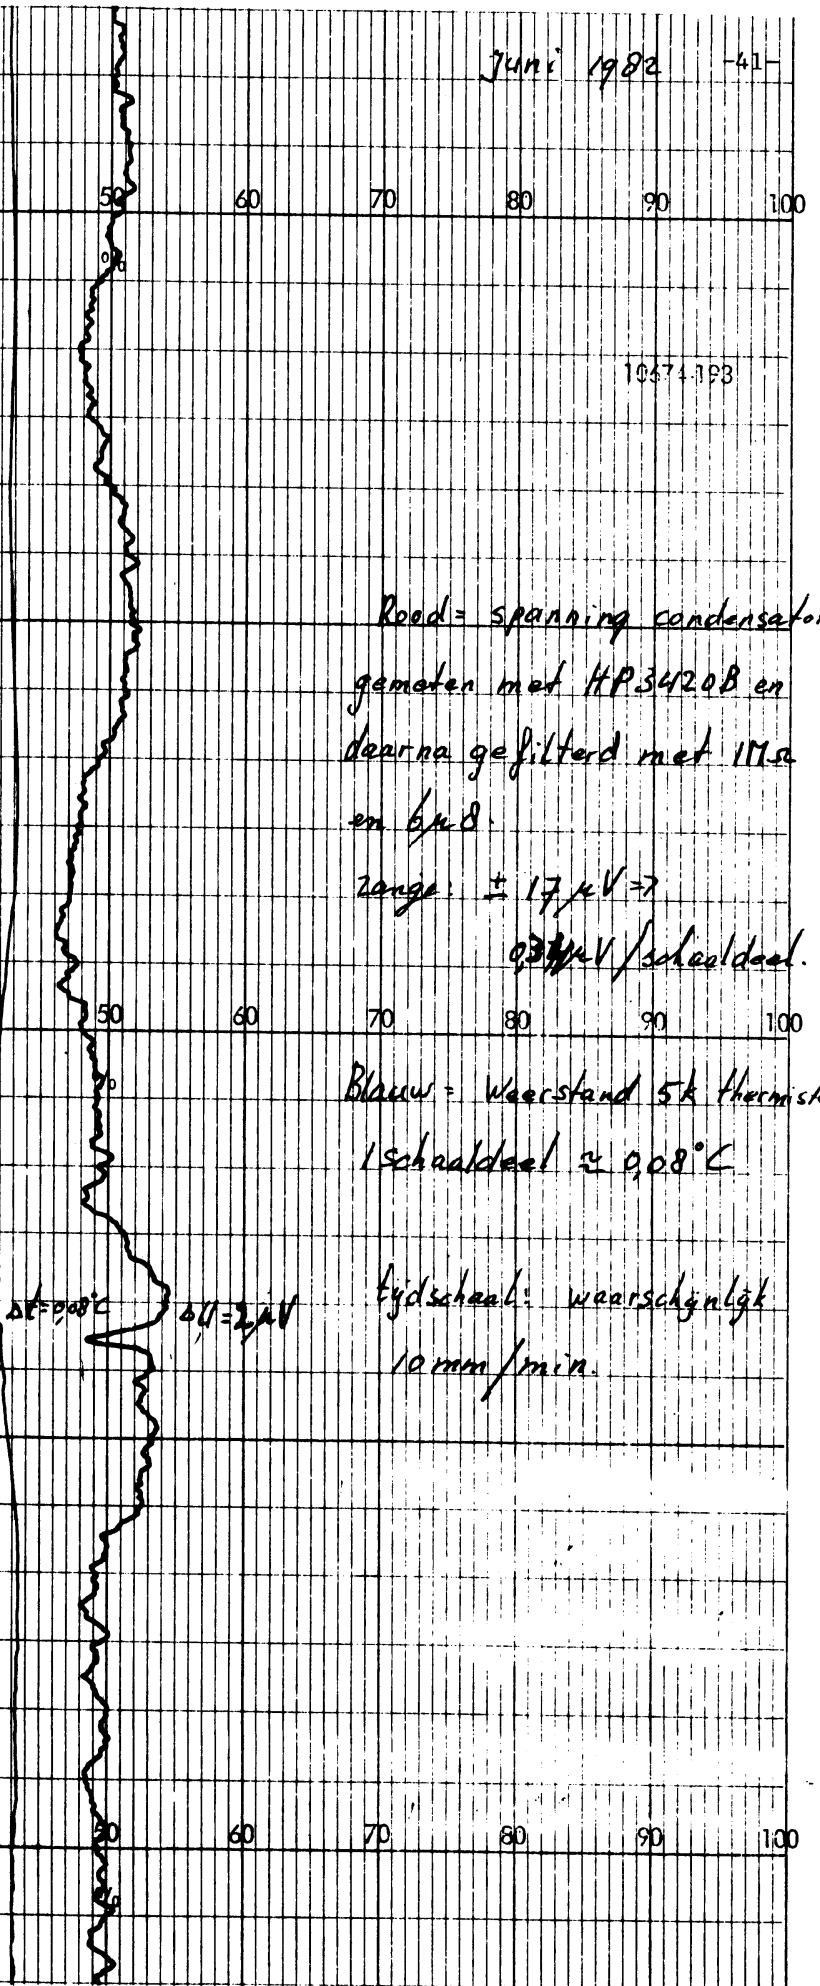 Juni 1982 -41-
50 60 70 80 90 100
%
Rood = spanning condensator
gemeten met HP3420B en
daarna gefilterd met 1MΩ
en 6μ8.
range: ± 17 μV =>
μV/schaaldeel.
50 60 70 80 90 100
%
Blauw = Weerstand 5k thermist
1 schaaldeel ≈ 0,08°C
tijdschaal: waarschijnlijk
Δt=0,08°C ΔU=2μV
10mm/min.
50 60 70 80 90 100
%